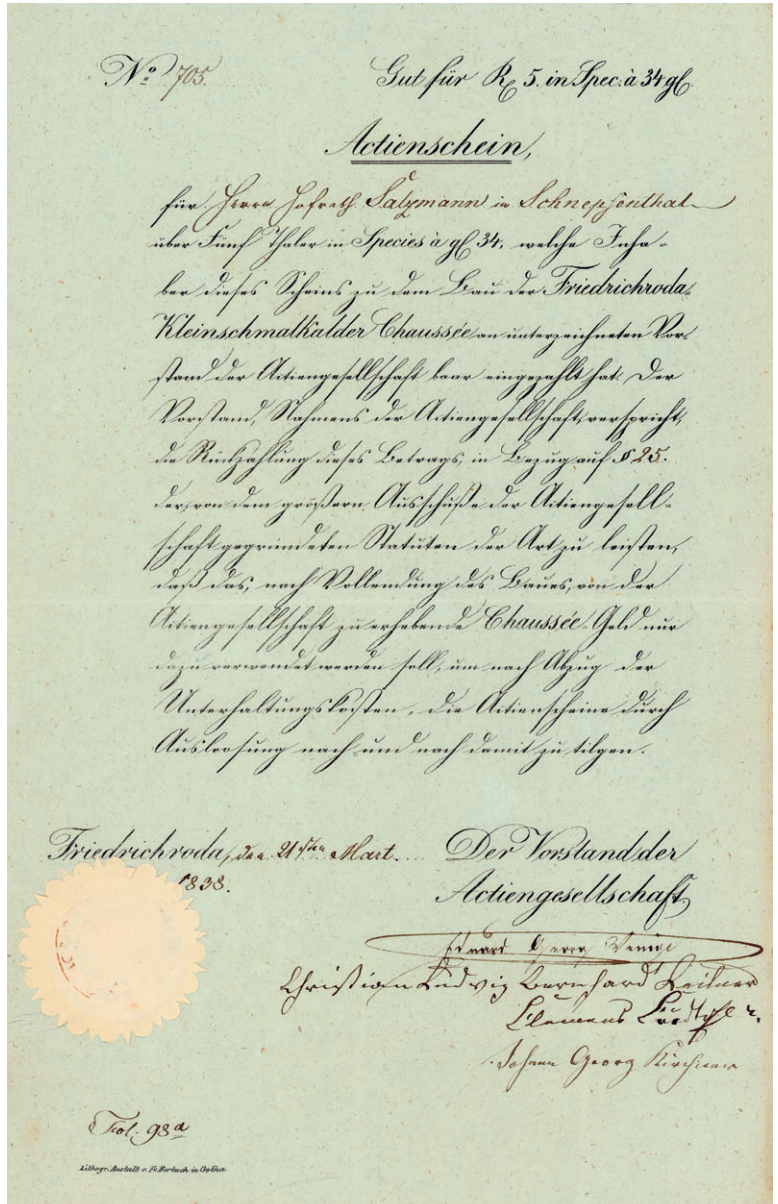 No. 705. Gut für Rß 5. in Spec. à 34 gl.
Actienschein,
für Herrn Hofrath Salzmann in Schnepfenthal
über Fünf Thaler in Species à gl. 34, welche Inha-
ber dieses Scheins zu dem Bau der Friedrichroda-
Kleinschmalkalder Chaussée an unterzeichneten Vor-
stand der Actiengesellschaft baar eingezahlt hat. Der
Vorstand, Nahmens der Actiengesellschaft, verspricht,
die Rückzahlung dieses Betrags, in Bezug auf § 25.
der, von dem größern Ausschuße der Actiengesell-
schaft gegründeten Statuten der Art zu leisten,
daß das, nach Vollendung des Baues, von der
Actiengesellschaft zu erhebende Chaussée-Geld nur
dazu verwendet werden soll, um nach Abzug der
Unterhaltungskosten, die Actienscheine durch
Ausloosung nach und nach damit zu tilgen.
Friedrichroda, den 21sten Mart. 1838.
Der Vorstand der
Actiengesellschaft
Eduard Georg
Christian Ludwig Bernhard
Clemens
Johann Georg Kirchner
Fol. 98a
Lithogr. Anstalt v. in Gotha